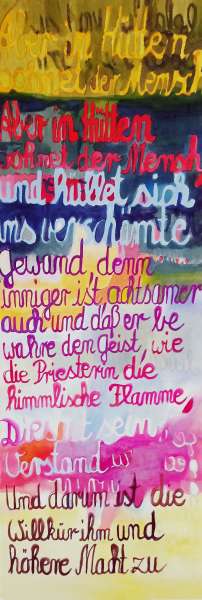 Aber in Hütten
wohnet der Mensch
Aber in Hütten
wohnet der Mensch,
und hüllet sich
ins verschämte
Gewand, denn
inniger ist achtsamer
auch und daß er be
wahre den Geist, wie
die Priesterin die
himmlische Flamme,
Dies ist sein
Verstand
Und darum ist die
Willkür ihm und
höhere Macht zu